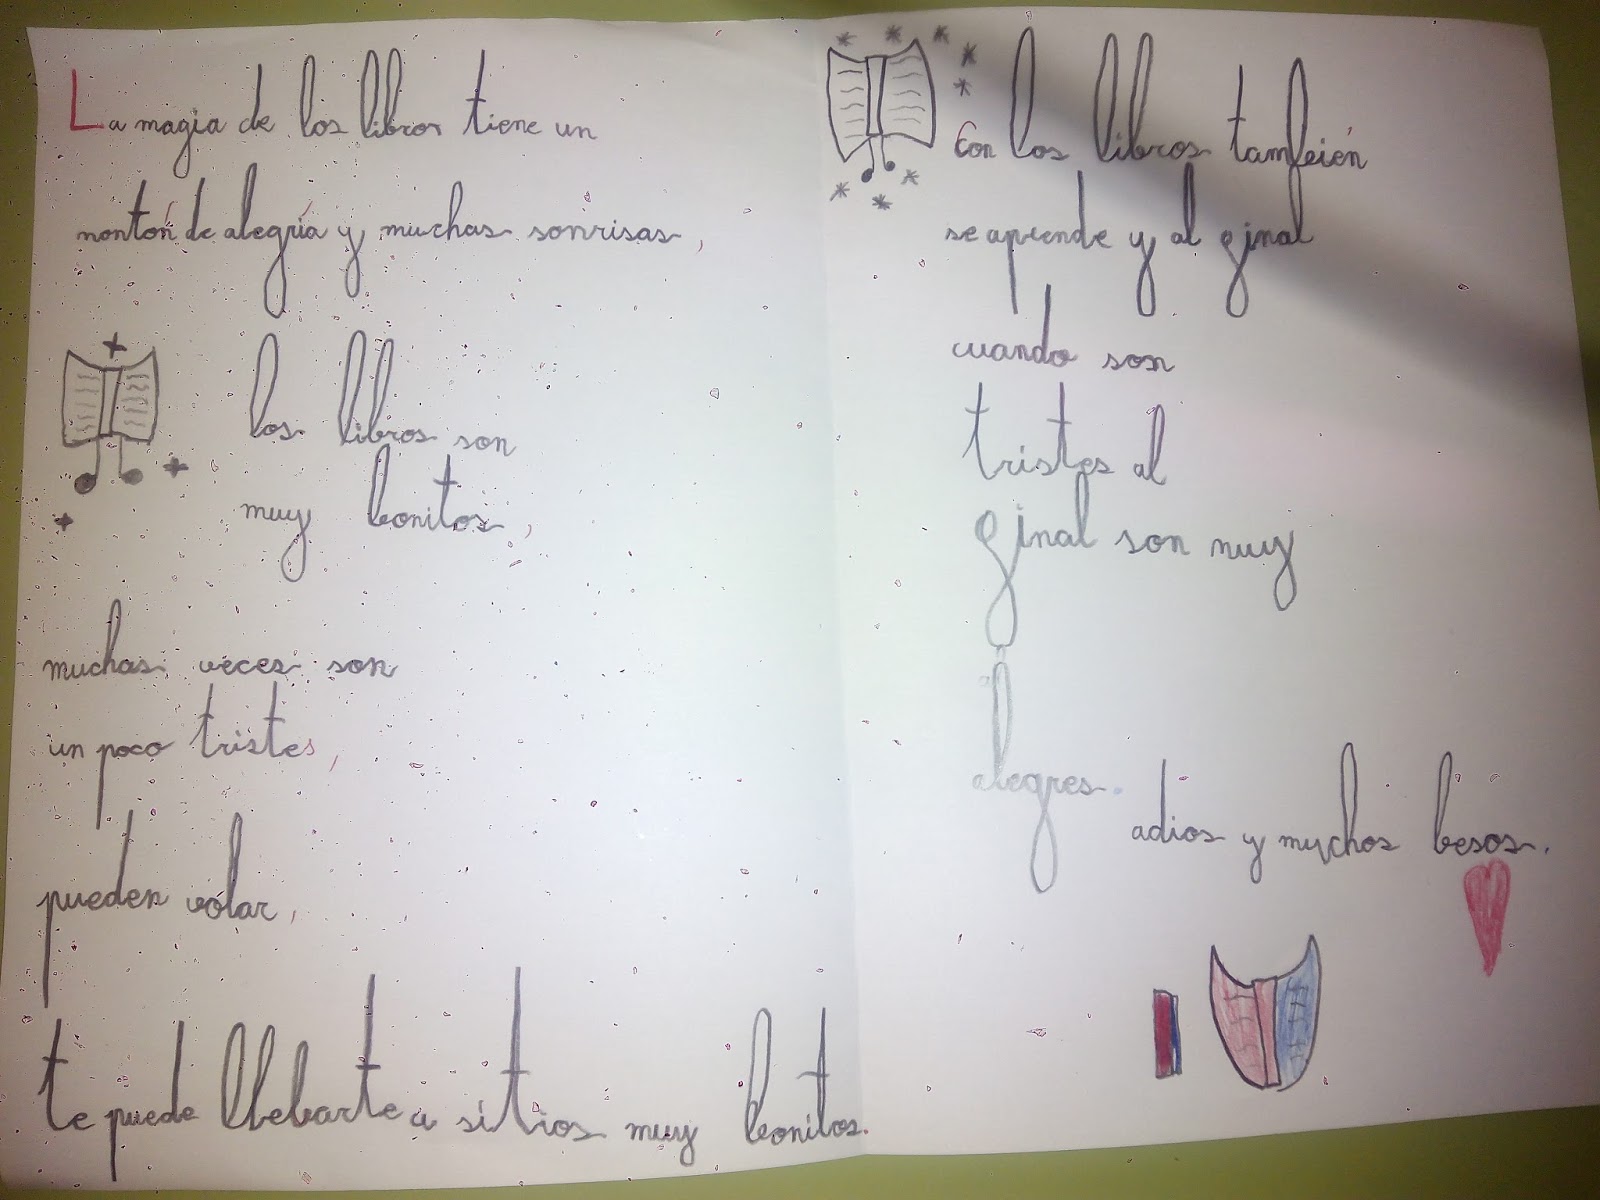 La magia de los libros tiene un
montón de alegría y muchas sonrisas,
los libros son
muy bonitos,
muchas veces son
un poco tristes,
pueden volar,
te puede llebarte a sitios muy bonitos.
Con los libros también
se aprende y al final
cuando son
tristes al
final son muy
alegres.
adios y muchos besos.